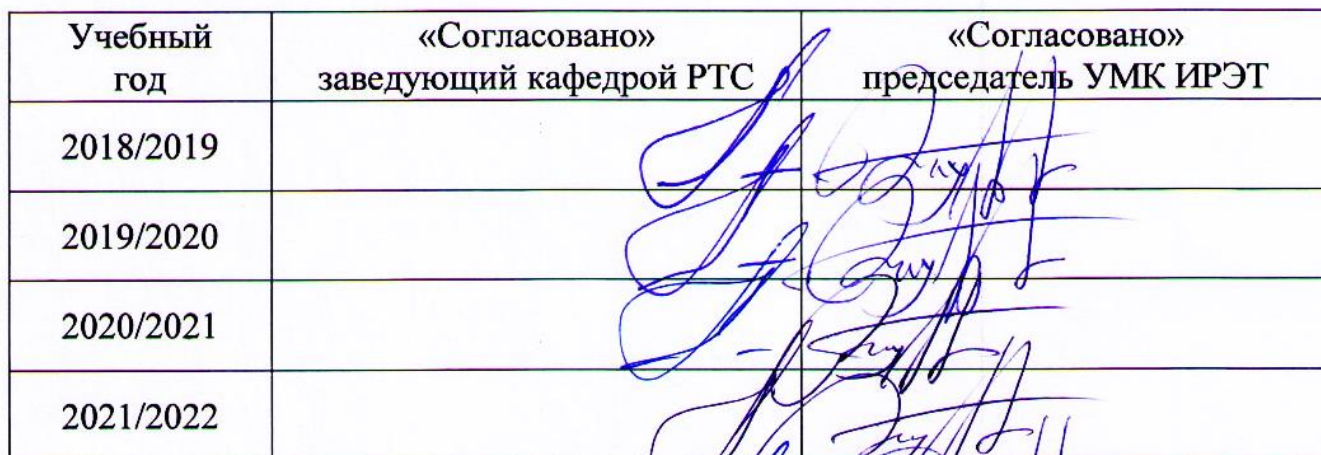 Учебный
год
«Согласовано»
заведующий кафедрой РТС
«Согласовано»
председатель УМК ИРЭТ
2018/2019
2019/2020
2020/2021
2021/2022